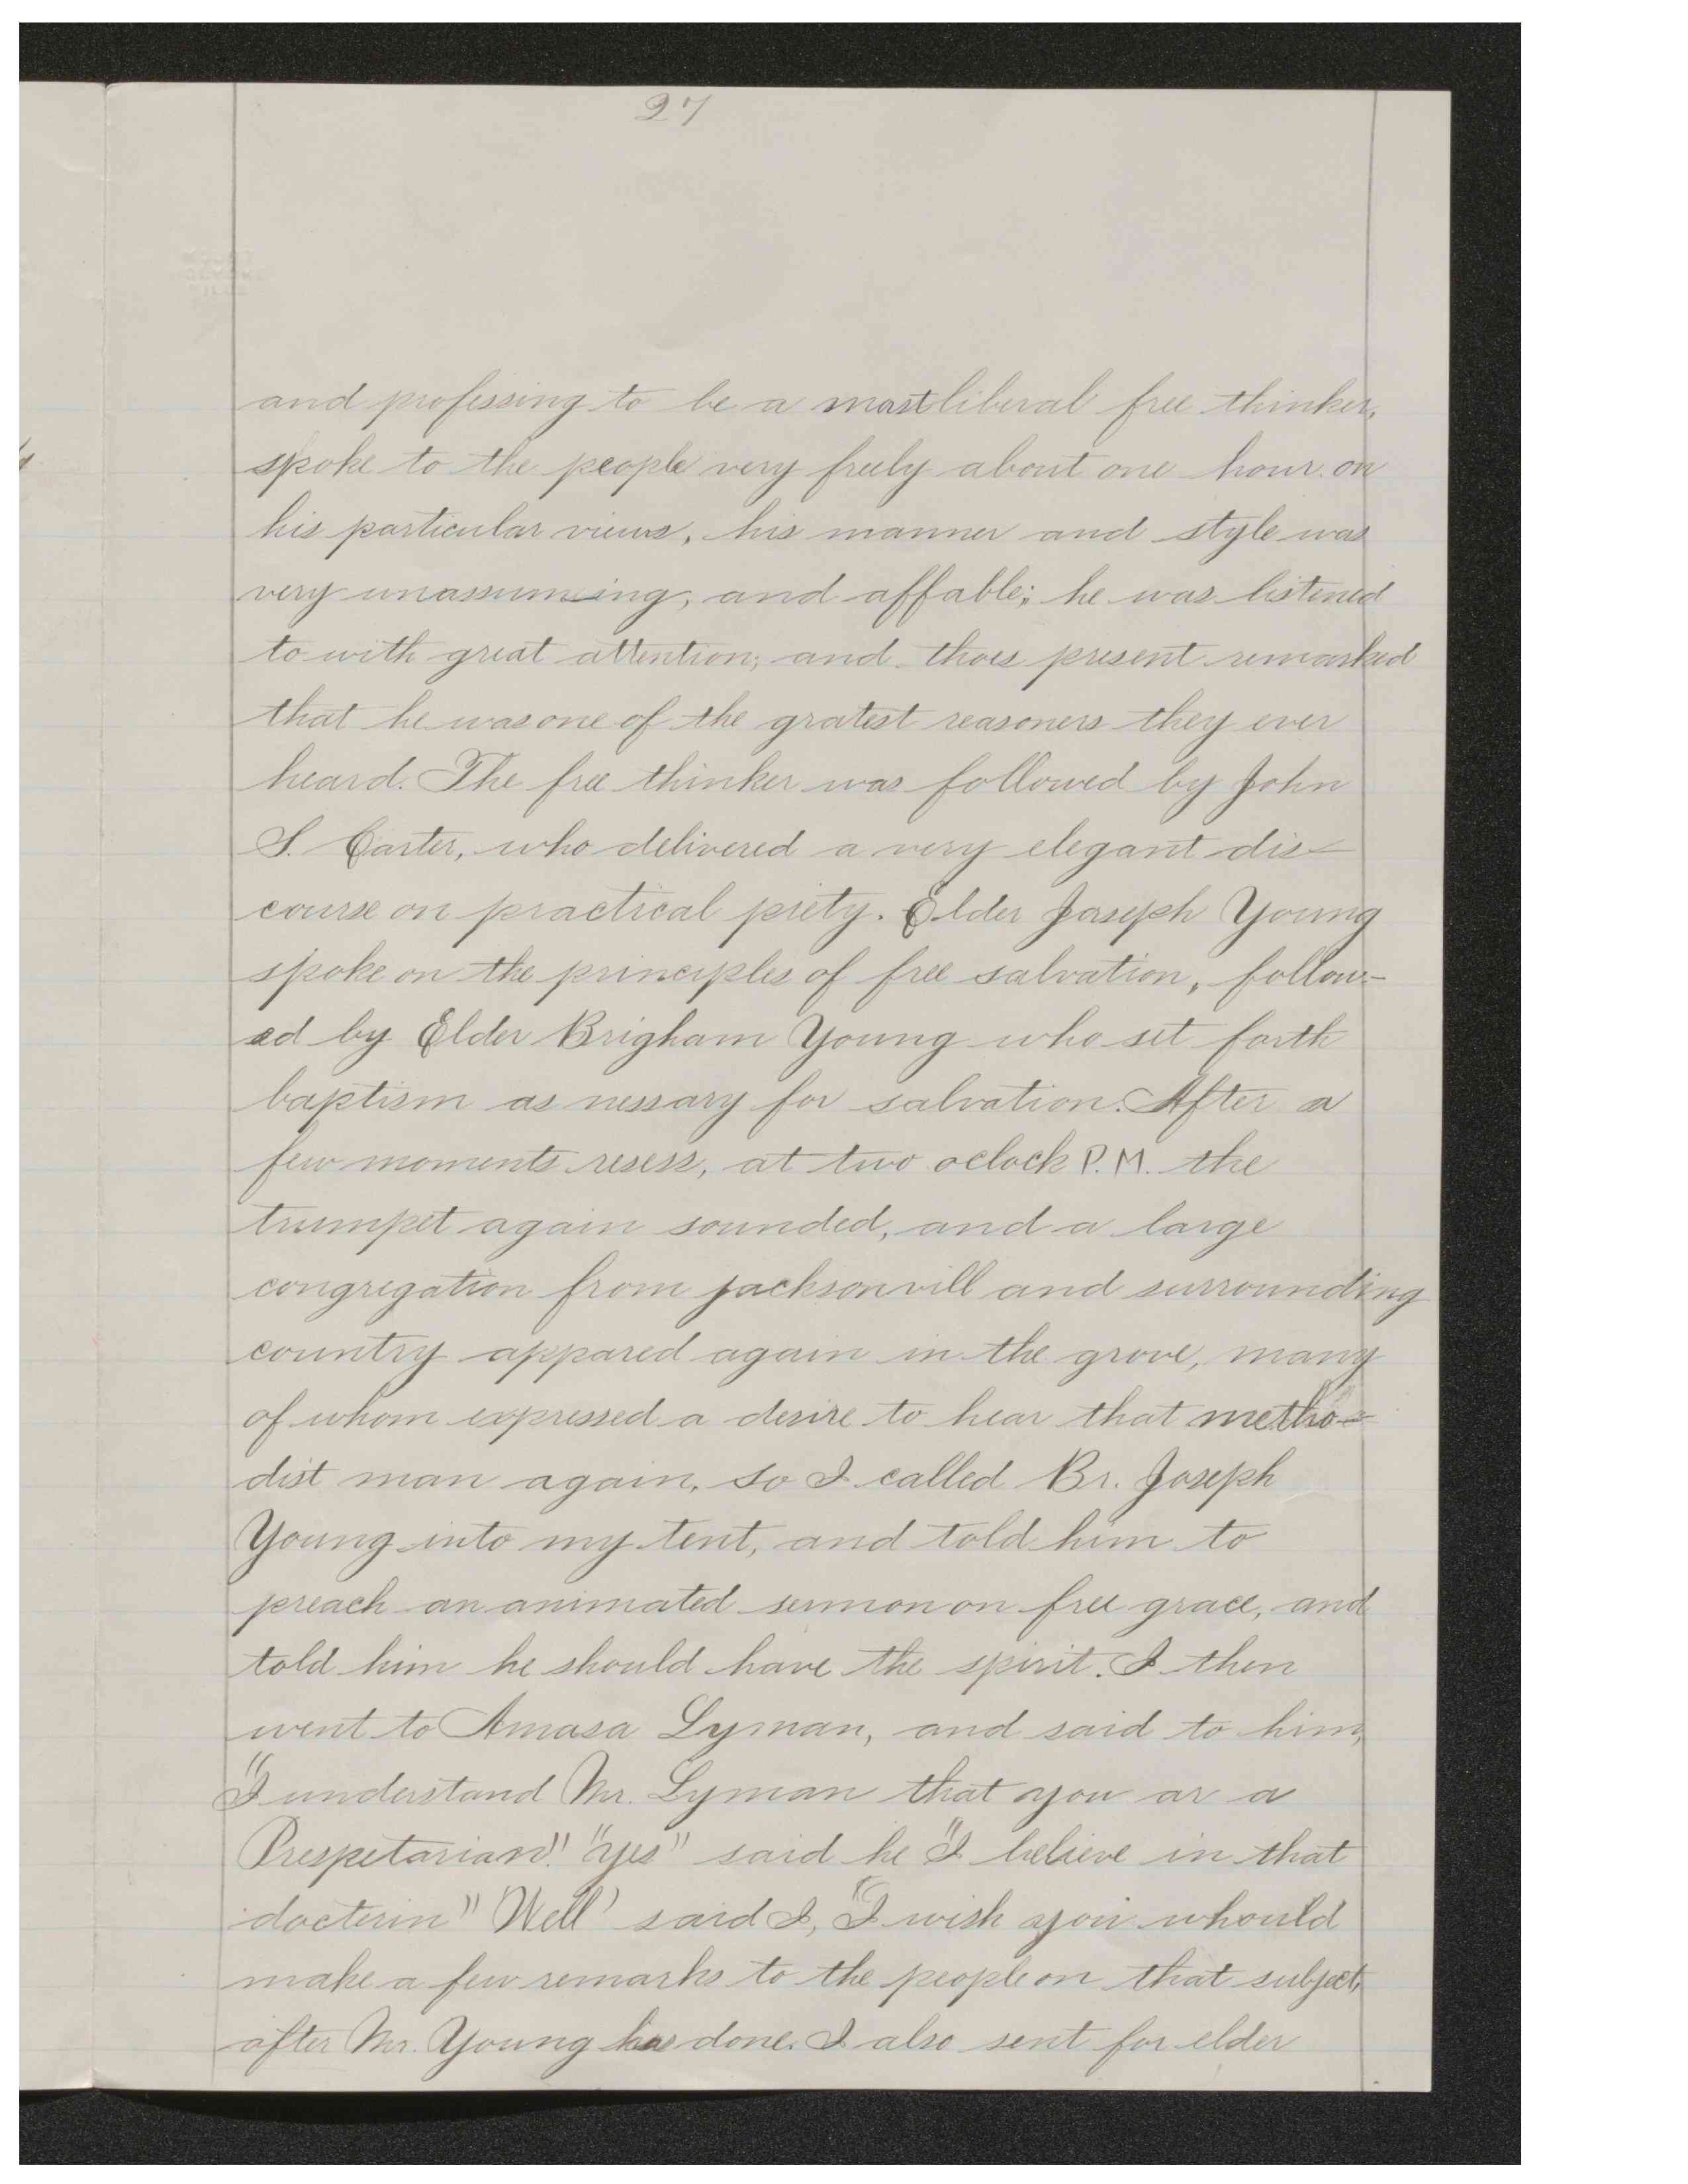 27
and professing to be a most liberal free thinker,
spoke to the people very freely about one hour on
his particular views, his manner and style was
very unassumeing, and affable; he was listened
to with great attention; and thoes present remarked
that he was one of the gratest reasoners they ever
heard. The free thinker was followed by John
S. Carter, who delivered a very elegant dis-
course on practical piety. Elder Joseph Young
spoke on the principles of free salvation, follow-
ed by Elder Brigham Young who set forth
baptism as nessary for salvation. After a
few moments resess, at two oclock P.M. the
trumpet again sounded, and a large
congregation from jacksonvill and surrounding
country appared again in the grove, many
of whom expressed a desire to hear that metho-
dist man again, so I called Br. Joseph
Young into my tent, and told him to
preach an animated sermon on free grace, and
told him he should have the spirit. I then
went to Amasa Lyman, and said to him,
"I understand Mr. Lyman that you ar a
Prespetarian". "yes" said he "I believe in that
docterin" "Well" said I, "I wish you whould
make a few remarks to the people on that subject,
after Mr. Young has done. I also sent for elder